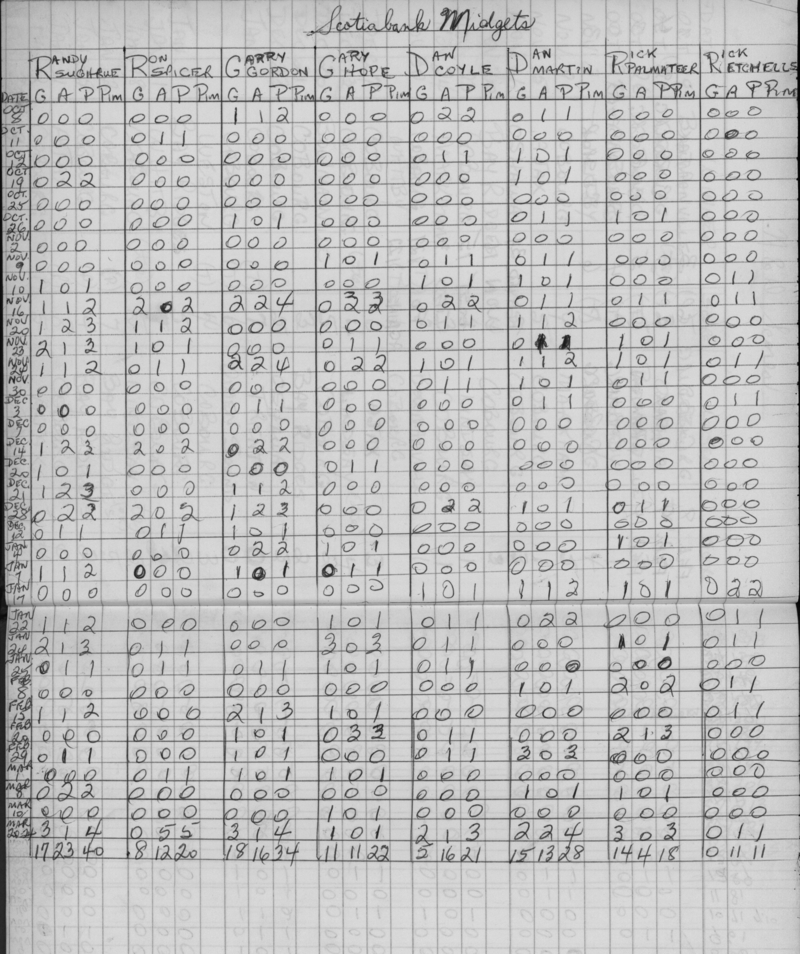 Scotiabank Midgets
RANDY SUGHRUE RON SPICER GARRY GORDON GARY HOPE DAN COYLE DAN MARTIN RICK PALMATEER RICK ETCHELLS
DATE G A P Pim G A P Pim G A P Pim G A P Pim G A P Pim G A P Pim G A P Pim G A P Pim
OCT 8 0 0 0 0 0 0 1 1 2 0 0 0 0 2 2 0 1 1 0 0 0 0 0 0
OCT. 11 0 0 0 0 1 1 0 0 0 0 0 0 0 0 0 0 0 0 0 0 0 0 0 0
OCT 12 0 0 0 0 0 0 0 0 0 0 0 0 0 1 1 1 0 1 0 0 0 0 0 0
OCT 19 0 2 2 0 0 0 0 0 0 0 0 0 0 0 0 1 0 1 0 0 0 0 0 0
OCT. 25 0 0 0 0 0 0 0 0 0 0 0 0 0 0 0 0 0 0 0 0 0 0 0 0
OCT. 26 0 0 0 0 0 0 1 0 1 0 0 0 0 0 0 0 1 1 1 0 1 0 0 0
NOV. 2 0 0 0 0 0 0 0 0 0 0 0 0 0 0 0 0 0 0 0 0 0 0 0 0
NOV. 9 0 0 0 0 0 0 0 0 0 1 0 1 0 1 1 0 1 1 0 0 0 0 0 0
NOV. 10 1 0 1 0 0 0 0 0 0 0 0 0 1 0 1 1 0 1 0 0 0 0 1 1
NOV. 16 1 1 2 2 0 2 2 2 4 0 3 3 0 2 2 0 1 1 0 1 1 0 1 1
NOV 20 1 2 3 1 1 2 0 0 0 0 0 0 0 1 1 1 1 2 0 0 0 0 0 0
NOV 23 2 1 3 1 0 1 0 0 0 0 1 1 0 0 0 0 1 1 1 0 1 0 0 0
NOV 1 1 2 0 1 1 2 2 4 0 2 2 1 0 1 1 1 2 1 0 1 0 1 1
NOV 30 0 0 0 0 0 0 0 0 0 0 0 0 0 1 1 1 0 1 0 1 1 0 0 0
DEC 3 0 0 0 0 0 0 0 1 1 0 0 0 0 0 0 0 1 1 0 0 0 0 1 1
DEC 7 0 0 0 0 0 0 0 0 0 0 0 0 0 0 0 0 0 0 0 0 0 0 0 0
DEC. 14 1 2 3 2 0 2 0 2 2 0 0 0 0 0 0 0 0 0 0 0 0 0 0 0
DEC. 20 1 0 1 0 0 0 0 0 0 0 1 1 0 0 0 0 0 0 0 0 0 0 0 0
DEC. 21 1 2 3 0 0 0 1 1 2 0 0 0 0 0 0 0 0 0 0 0 0 0 0 0
DEC 28 0 2 2 2 0 2 1 2 3 0 0 0 0 2 2 1 0 1 0 1 1 0 0 0
DEC. 12 0 1 1 0 1 1 1 0 1 0 0 0 0 0 0 0 0 0 0 0 0 0 0 0
JAN 4 0 0 0 0 0 0 0 2 2 1 0 1 0 0 0 0 0 0 1 0 1 0 0 0
JAN 7 1 1 2 0 0 0 1 0 1 0 1 1 0 0 0 0 0 0 0 0 0 0 0 0
JAN 17 0 0 0 0 0 0 0 0 0 0 0 0 1 0 1 1 1 2 1 0 1 0 2 2
JAN 22 1 1 2 0 0 0 0 0 0 1 0 1 0 1 1 0 2 2 0 0 0 0 1 1
JAN 24 2 1 3 0 1 1 0 0 0 3 0 3 0 1 1 0 0 0 1 0 1 0 1 1
JAN 25 0 1 1 0 1 1 0 1 1 1 0 1 0 1 1 0 0 0 0 0 0 0 0 0
FEB 8 0 0 0 0 0 0 0 0 0 0 0 0 0 0 0 1 0 1 2 0 2 0 1 1
FEB 1 1 2 0 0 0 2 1 3 1 0 1 0 0 0 0 0 0 0 0 0 0 1 1
FEB 0 0 0 0 0 0 1 0 1 0 3 3 0 1 1 0 0 0 2 1 3 0 0 0
FEB 29 0 1 1 0 0 0 1 0 1 0 0 0 0 1 1 3 0 3 0 0 0 0 0 0
MAR 1 0 0 0 0 1 1 1 0 1 1 0 1 0 0 0 0 0 0 0 0 0 0 0 0
MAR 8 0 2 2 0 0 0 0 0 0 0 0 0 0 0 0 1 0 1 1 0 1 0 0 0
MAR 10 0 0 0 0 0 0 0 0 0 1 0 1 0 0 0 0 0 0 0 0 0 0 0 0
MAR 20-24 3 1 4 0 5 5 3 1 4 1 0 1 2 1 3 2 2 4 3 0 3 0 1 1
17 23 40 8 12 20 18 16 34 11 11 22 5 16 21 15 13 28 14 4 18 0 11 11